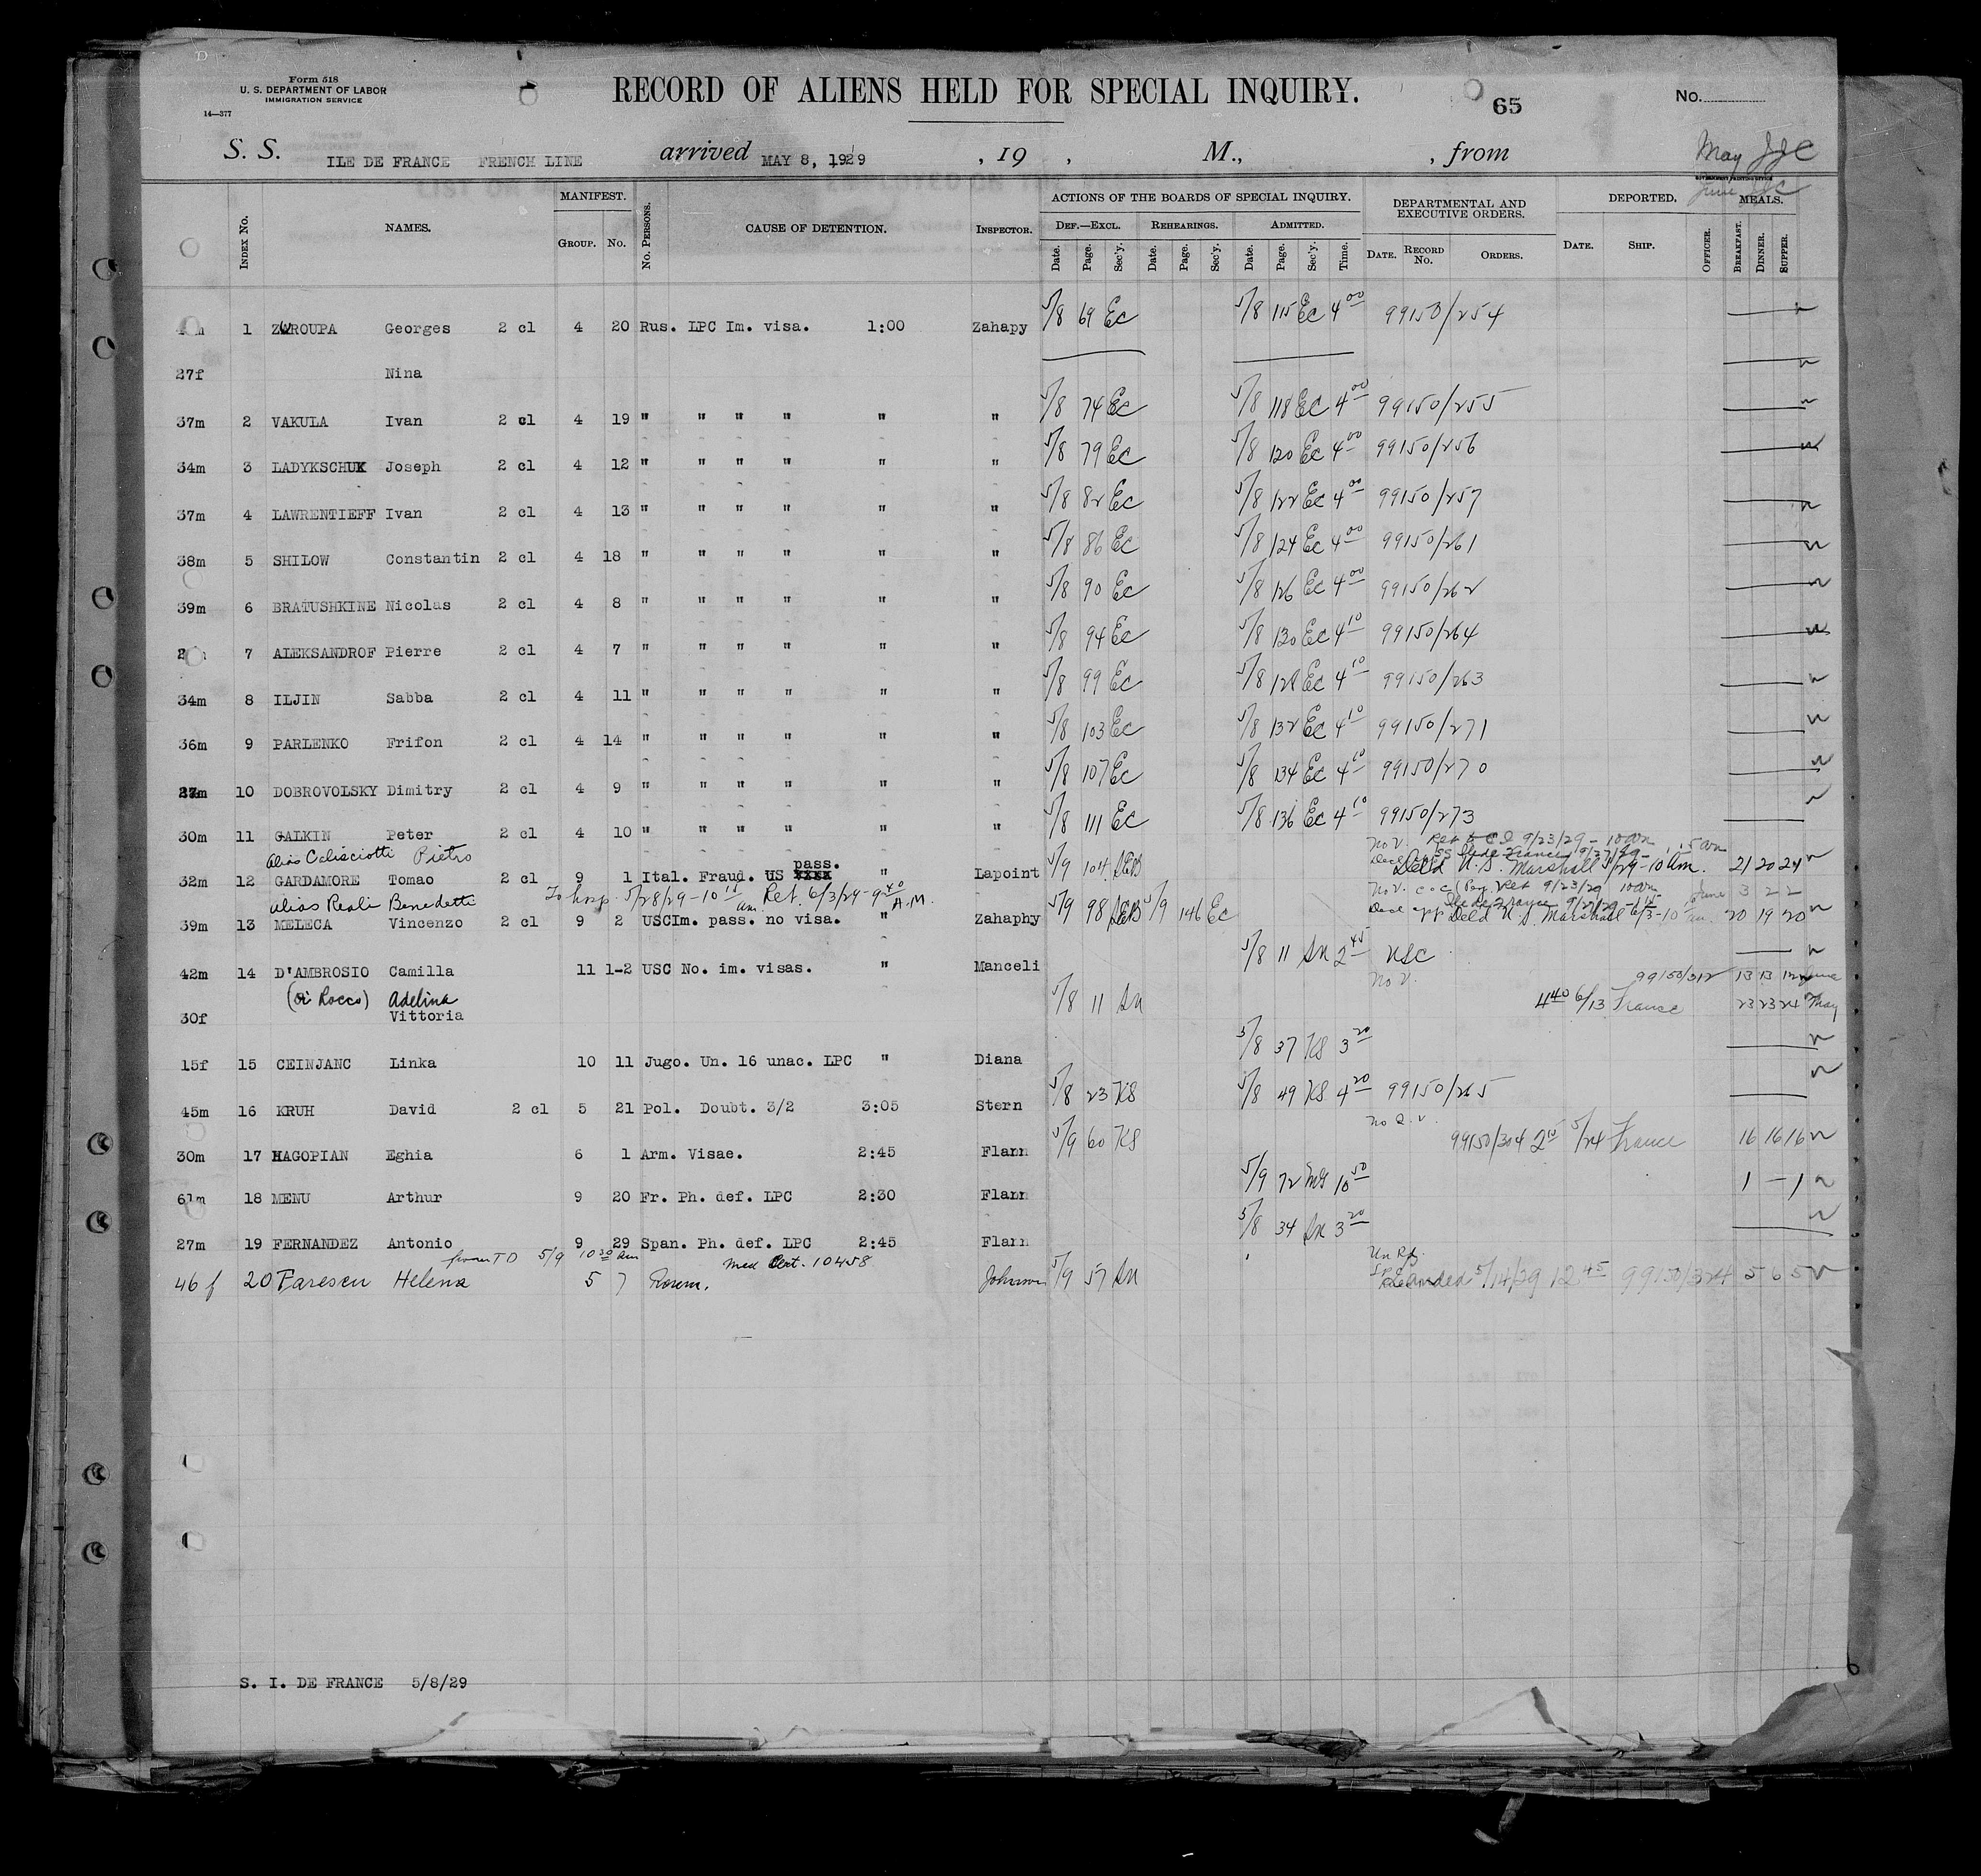 Form 518
U. S. DEPARTMENT OF LABOR
IMMIGRATION SERVICE
14—377
RECORD OF ALIENS HELD FOR SPECIAL INQUIRY.
65
No.
S. S. ILE DE FRANCE FRENCH LINE arrived MAY 8, 1929 , 19 , M., , from
May JJC
June JJC
INDEX No. NAMES. MANIFEST. GROUP. No. No. PERSONS. CAUSE OF DETENTION. INSPECTOR. ACTIONS OF THE BOARDS OF SPECIAL INQUIRY. DEF.—EXCL. Date. Page. Sec'y. REHEARINGS. Date. Page. Sec'y. ADMITTED. Date. Page. Sec'y. Time. DEPARTMENTAL AND EXECUTIVE ORDERS. DATE. RECORD No. ORDERS. DEPORTED. DATE. SHIP. OFFICER. MEALS. BREAKFAST. DINNER. SUPPER.
1 ROUPA Georges 2 cl 4 20 Rus. LPC Im. visa. 1:00 Zahapy 5/8 69 Ec 5/8 115 Ec 4 00 99150/254
27f Nina
37m 2 VAKULA Ivan 2 cl 4 19 " " " " " " 5/8 74 Ec 5/8 118 Ec 4 00 99150/255
34m 3 LADYKSCHUK Joseph 2 cl 4 12 " " " " " " 5/8 79 Ec 5/8 120 Ec 4 00 99150/256
37m 4 LAWRENTIEFF Ivan 2 cl 4 13 " " " " " " 5/8 82 Ec 5/8 122 Ec 4 00 99150/257
38m 5 SHILOW Constantin 2 cl 4 18 " " " " " " 5/8 86 Ec 5/8 124 Ec 4 00 99150/261
39m 6 BRATUSHKINE Nicolas 2 cl 4 8 " " " " " " 5/8 90 Ec 5/8 126 Ec 4 00 99150/262
7 ALEKSANDROF Pierre 2 cl 4 7 " " " " " " 5/8 94 Ec 5/8 130 Ec 4 10 99150/264
34m 8 ILJIN Sabba 2 cl 4 11 " " " " " " 5/8 99 Ec 5/8 128 Ec 4 10 99150/263
36m 9 PARLENKO Frifon 2 cl 4 14 " " " " " " 5/8 103 Ec 5/8 132 Ec 4 10 99150/271
10 DOBROVOLSKY Dimitry 2 cl 4 9 " " " " " " 5/8 107 Ec 5/8 134 Ec 4 10 99150/270
30m 11 GALKIN Peter 2 cl 4 10 " " " " " " 5/8 111 Ec 5/8 136 Ec 4 10 99150/273
alias Calisciotti Pietro pass. No V. 9/23/29 - 10 am
32m 12 GARDAMORE Tomao 2 cl 9 1 Ital. Fraud. US " Lapoint 5/9 104 Deld U. S. Marshall 5/29-10 Am. 21 20 24
alias Reali Benedetti To hosp. 5/28/29-10 15 am Ret. 6/3/29-9 40 A.M. No V. 9/23/29 10 am June 3 2 2
39m 13 MELECA Vincenzo 2 cl 9 2 USC Im. pass. no visa. " Zahaphy 5/9 98 5/9 146 Ec Deld U. S. Marshall 6/3-10 20 19 20
42m 14 D'AMBROSIO Camilla 11 1-2 USC No. im. visas. " Manceli 5/8 11 2 45 USC
No V. 99150/312 13 13 12 June
(di Rocco) Adelina 5/8 11 4 40 6/13 France 23 23 24 May
30f Vittoria
15f 15 CEINJANC Linka 10 11 Jugo. Un. 16 unac. LPC " Diana 5/8 37 KS 3 20
45m 16 KRUH David 2 cl 5 21 Pol. Doubt. 3/2 3:05 Stern 5/8 23 KS 5/8 49 KS 4 20 99150/265
30m 17 HAGOPIAN Eghia 6 1 Arm. Visae. 2:45 Flann 5/9 60 KS 99150/304 2 15 5/24 France 16 16 16
61m 18 MENU Arthur 9 20 Fr. Ph. def. LPC 2:30 Flann 5/9 72 10 50 1 — 1
27m 19 FERNANDEZ Antonio 9 29 Span. Ph. def. LPC 2:45 Flann 5/8 34 3 20
from TD 5/9 10 30 Am Med Cert. 10458
46 f 20 Faresen Helena 5 7 Roum. Johnson 5/9 57 Landed 5/14/29 12 45 99150/324 5 6 5
S. I. DE FRANCE 5/8/29